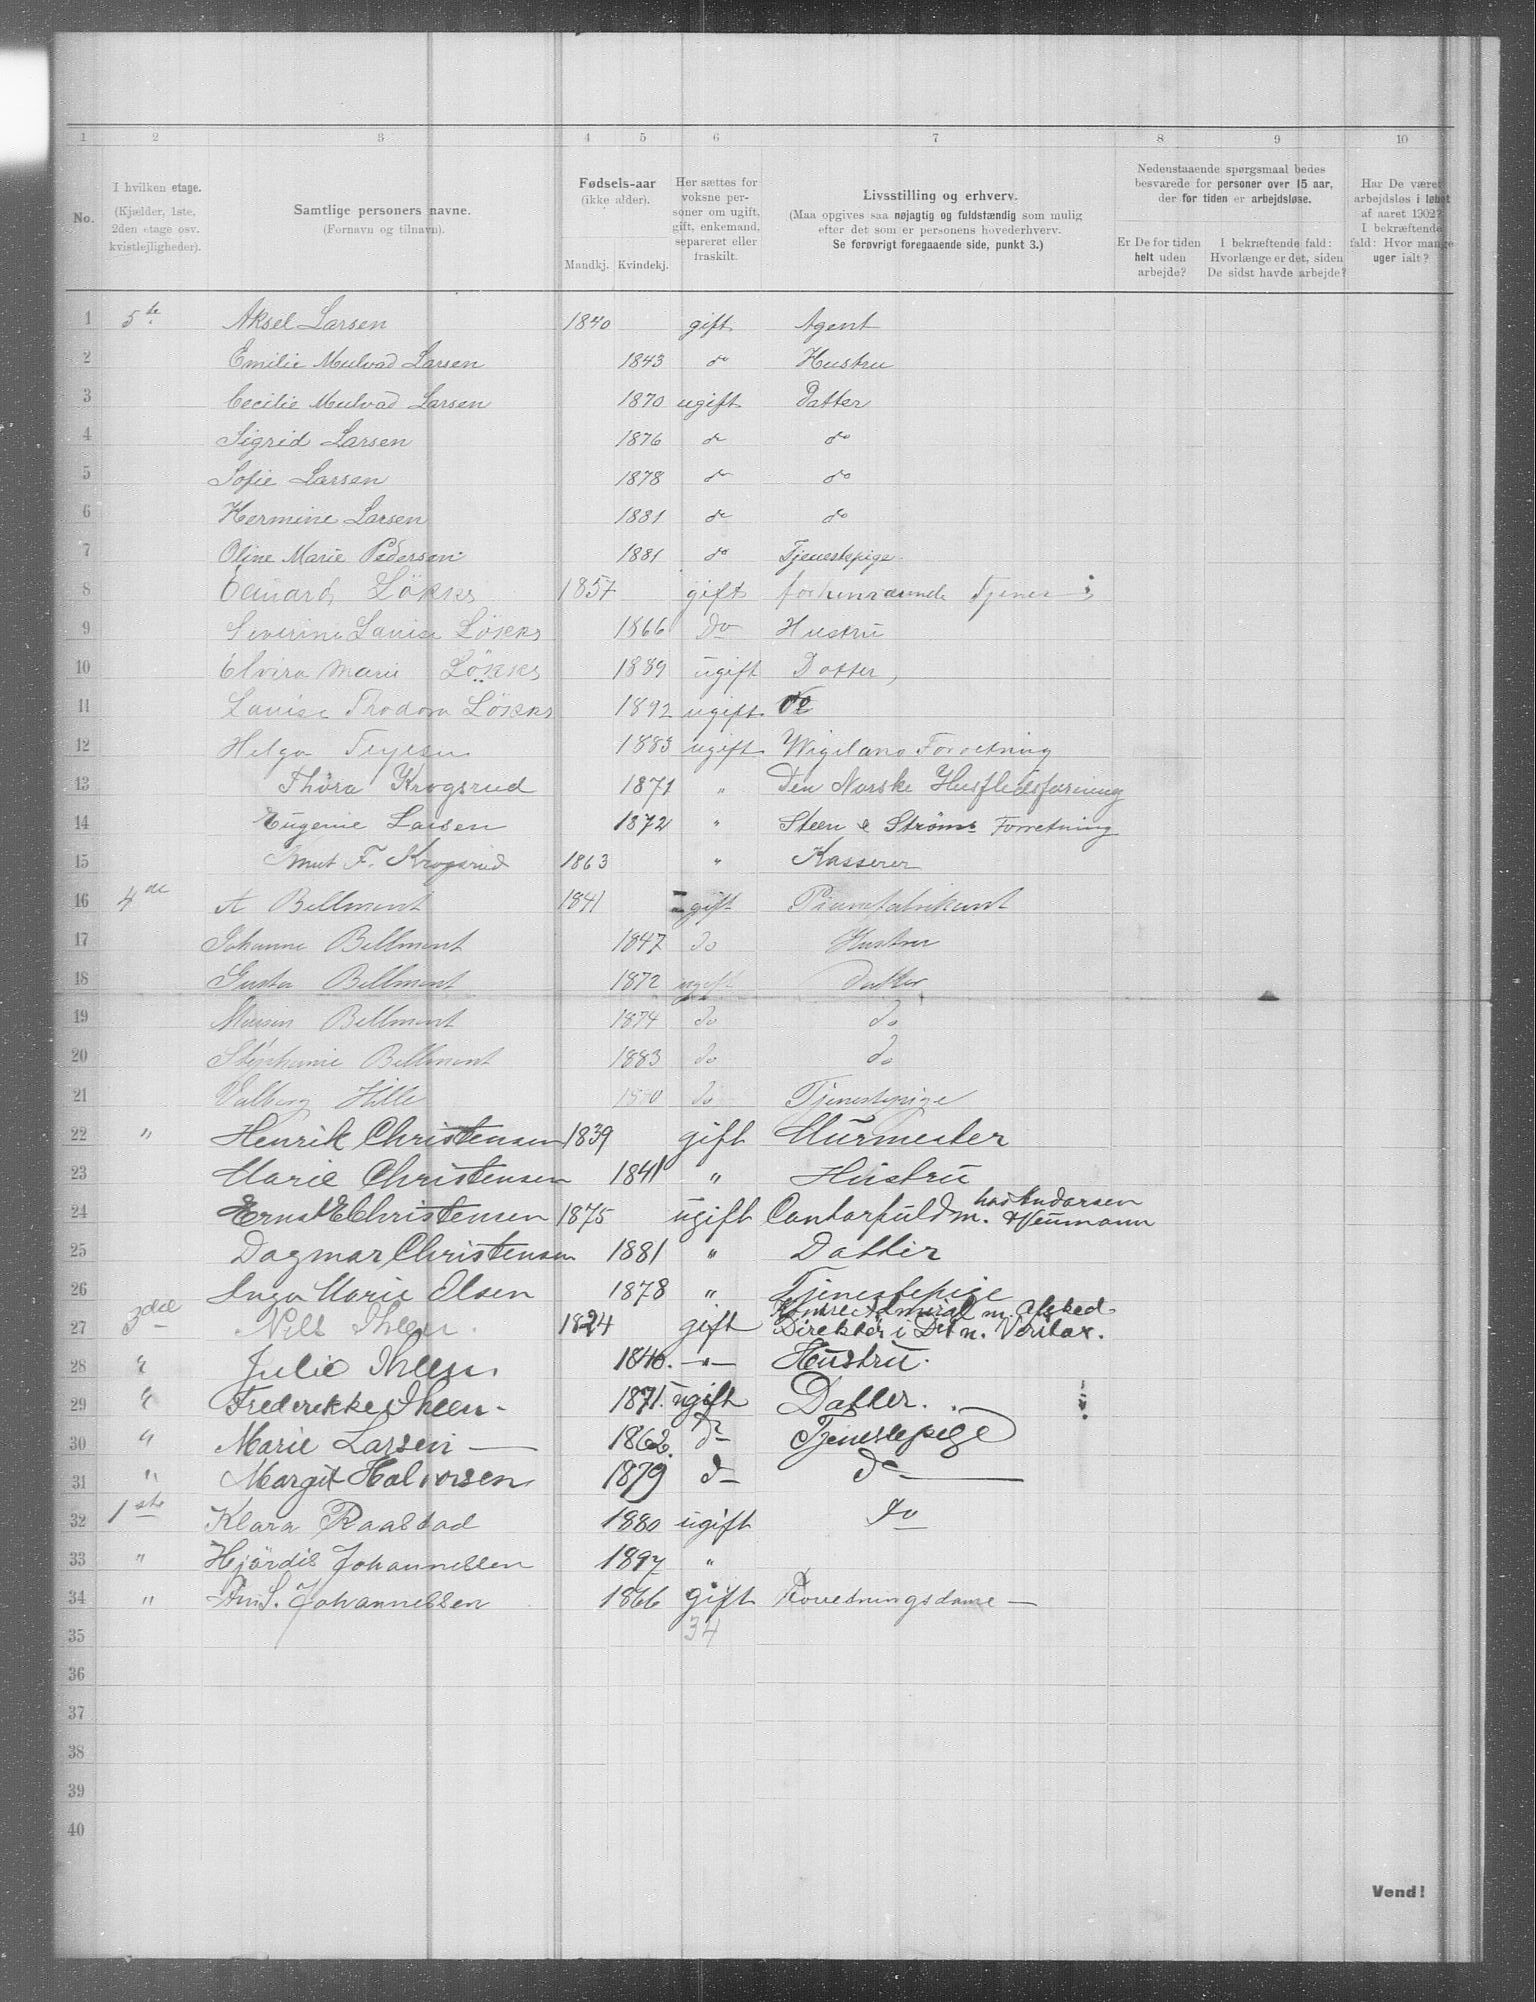 1 2 3 4 5 6 7 8 9 10
No.
I hvilken etage.
(Kjælder, 1ste,
2den etage osv.
kvistlejligheder).
Samtlige personers navne.
(Fornavn og tilnavn).
Fødsels-aar
(ikke alder).
Mandkj. Kvindekj.
Her sættes for
voksne per-
soner om ugift,
gift, enkemand,
separeret eller
fraskilt.
Livsstilling og erhverv.
(Maa opgives saa nøjagtig og fuldstændig som mulig
efter det som er personens hovederhverv.
Se forøvrigt foregaaende side, punkt 3.)
Nedenstaaende spørgsmaal bedes
besvarede for personer over 15 aar,
der for tiden er arbejdsløse.
Er De for tiden
helt uden
arbejde?
I bekræftende fald:
Hvorlænge er det, siden
De sidst havde arbejde?
Har De været
arbejdsløs i løbet
af aaret 1902?
I bekræftende
fald: Hvor mange
uger ialt?
1 5te Aksel Larsen 1840 gift Agent
2 Emilie Mulvad Larsen 1843 do Hustru
3 Cecilie Mulvad Larsen 1870 ugift Datter
4 Sigrid Larsen 1876 do do
5 Sofie Larsen 1878 do do
6 Hermine Larsen 1881 do do
7 Oline Marie Pedersen 1881 do Tjenestepige
8 Eduard Løkks 1857 gift forhenværende Tjener
9 Severine Lauise Løkks 1866 Do Hustru
10 Elvira Marie Løkks 1889 ugift Datter,
11 Lauise Trodora Løkks 1892 ugift do
12 Helga 1883 ugift Wigelans Forretning
13 Thora Krogsrud 1871 " Den Norske Husflidsforening
14 Eugenie Larsen 1872 " Steen & Strøms Forretning
15 Knut F. Krogsrud 1863 " Kasserer
16 4de A Bellmont 1841 gift Pianofabrikant
17 Johanne Bellmont 1847 do Hustru
18 Gusta Bellmont 1872 ugift Datter
19 Bellmont 1874 do do
20 Stephanie Bellmont 1883 do do
21 Valborg Hille do Tjenestepige
22 " Henrik Christensen 1839 gift Murmester
23 Marie Christensen 1841 " Hustru
24 Ernst E Christensen 1875 ugift Contorfuldm. hos Andersen & Neumann
25 Dagmar Christensen 1881 " Datter
26 Inga Marie Olsen 1878 " Tjenestepige
27 3die Nils Ihlen. 1824 gift Kontre Admiral m. Afsked. Direktør i Det n. Veritas.
28 " Julie Ihlen. 1840. " Hustru.
29 " Frederikke Ihlen. 1871. ugift Datter.
30 " Marie Larsen 1862. do Tjenestepige
31 " Margit Halvorsen 1879 do do
32 1ste Klara Raastad 1880 ugift do
33 " Hjördis Johannessen 1897 "
34 " Johannessen 1866 gift Forretningsdame
35 34
36
37
38
39
40
Vend!